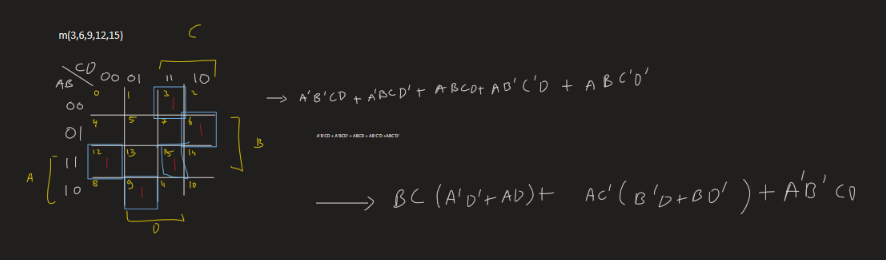 C
m(3,6,9,12,15)
CD
AB
00 01 11 10
0 1 3 2
00 1
4 5 7 6
01 1
B
12 13 15 14
A 11 1 1
8 9 4 10
10 1
D
→ A'B'CD + A'BCD' + ABCD+ AB'C'D + ABC'D'
A'B'CD + A'BCD' + ABCD + AB'C'D +ABC'D'
→ BC (A'D'+ AD)+ AC' ( B'D+BD' ) + A'B' CD